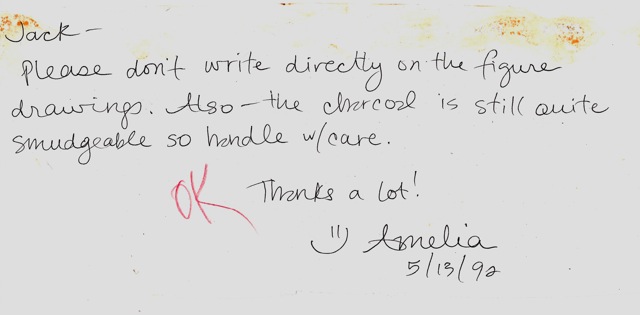 Jack -
Please don't write directly on the figure
drawings. Also - the charcoal is still quite
smudgeable so handle w/care.
OK Thanks a lot!
Amelia
5/13/92